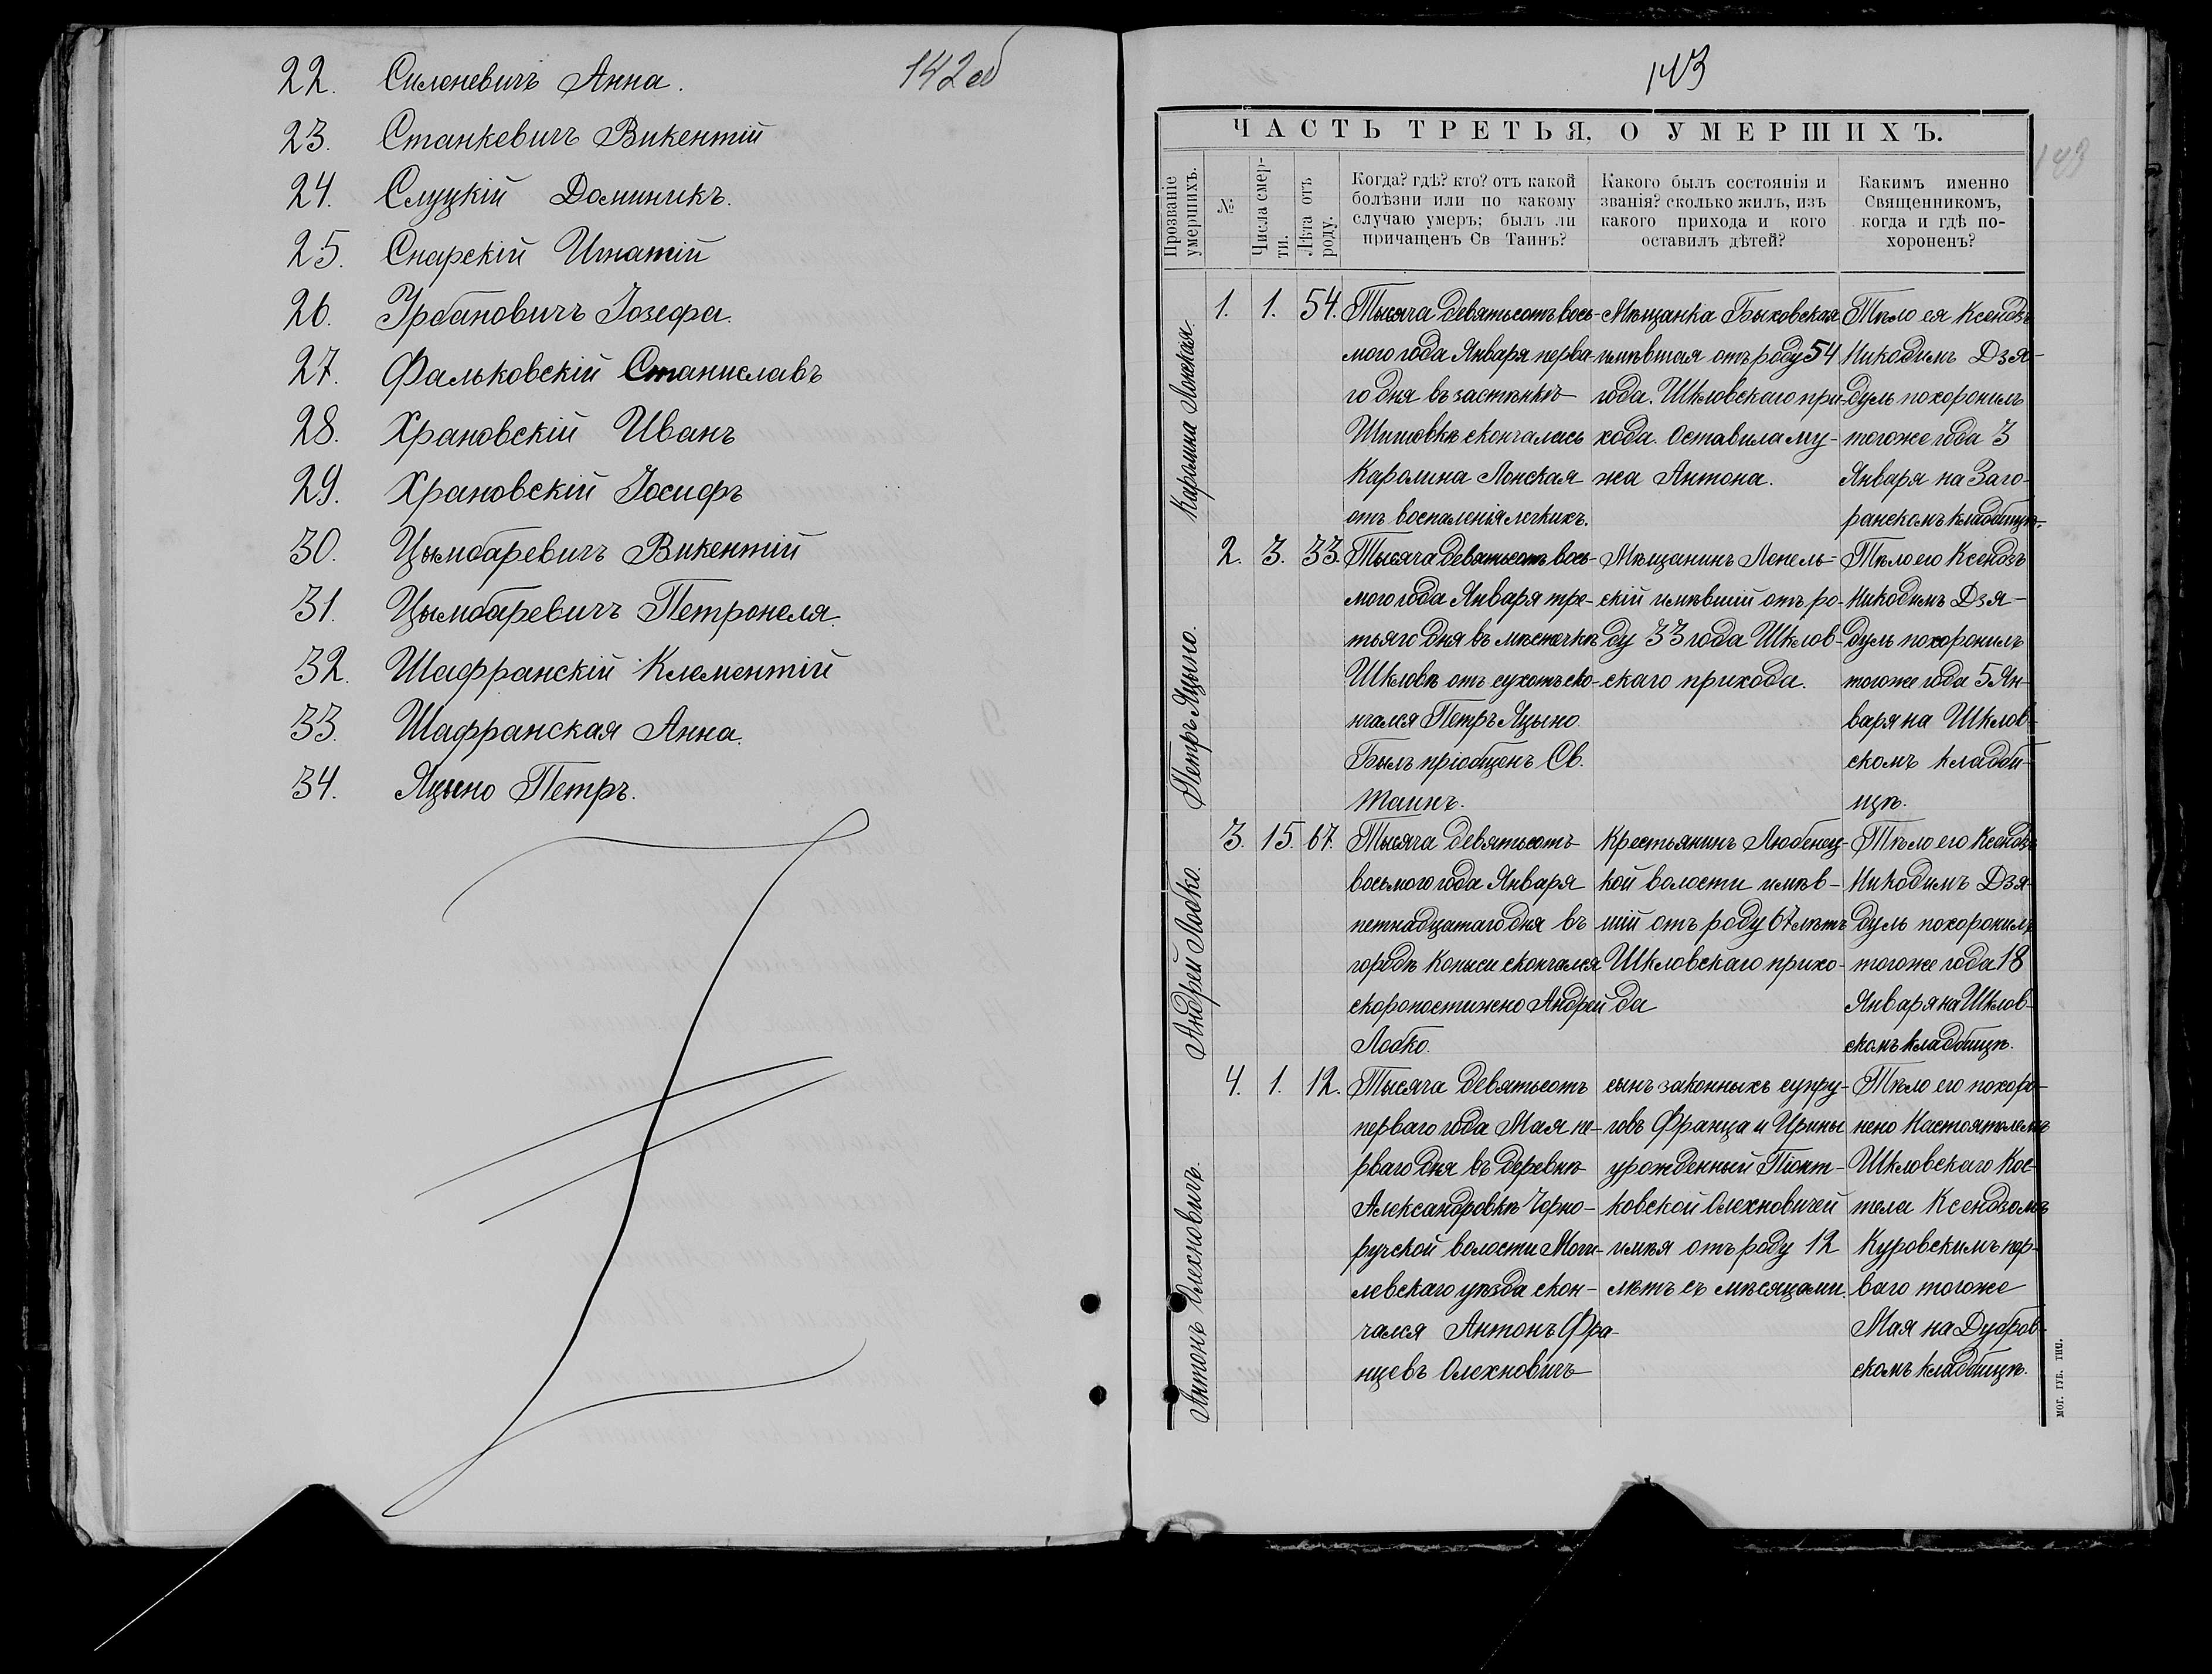 142 об
22. Силеневичъ Анна.
23. Станкевичъ Викентій
24. Слуцкій Доминикъ.
25. Снарскій Игнатій
26. Урбановичъ Іозефа.
27. Фальковскій Станиславъ
28. Храновскій Иванъ
29. Храновскій Іосифъ
30. Цымбаревичъ Викентій
31. Цымбаревичъ Петронеля.
32. Шафранскій Клементій
33. Шафранская Анна.
34. Яцыно Петръ.
143
143
ЧАСТЬ ТРЕТЬЯ, О УМЕРШИХЪ.
Прозваніе
умершихъ.
№
Числа смер-
ти.
Лѣта отъ
роду.
Когда? гдѣ? кто? отъ какой
болѣзни или по какому
случаю умеръ; былъ ли
причащенъ Св Таинъ?
Какого былъ состоянія и
званія? сколько жилъ, изъ
какого прихода и кого
оставилъ дѣтей?
Какимъ именно
Священникомъ,
когда и гдѣ по-
хороненъ?
Каролина Лонская.
1. 1. 54.
Тысяча девятьсотъ вось-
мого года Января перва-
го дня въ застѣнкѣ
Шитовкѣ скончалась
Каролина Лонская
отъ воспаленія легкихъ.
Мѣщанка Быховская
имѣвшая отъ роду 54
года. Шкловскаго при-
хода. Оставила му-
жа Антона.
Тѣло ея Ксендзъ
Никодимъ Дзя-
дуль похоронилъ
тогоже года 3
Января на Заго-
ранскомъ кладбищѣ.
Петръ Яцыно.
2. 3. 33.
Тысяча девятьсотъ вось-
мого года Января тре-
тьяго дня въ мѣстечкѣ
Шкловѣ отъ сухотъ ско-
нчался Петръ Яцыно.
Былъ пріобщенъ Св.
Таинъ.
Мѣщанинъ Лепель-
скій имѣвшій отъ ро-
ду 33 года Шклов-
скаго прихода.
Тѣло его Ксендзъ
Никодимъ Дзя-
дуль похоронилъ
тогоже года 5 Ян-
варя на Шклов-
скомъ кладби-
щѣ.
Андрей Лобко.
3. 15. 67.
Тысяча девятьсотъ
восьмого года Января
петнадцатаго дня въ
городѣ Копыси скончался
скоропостижено Андрей
Лобко.
Крестьянинъ Любенец-
кой волости имѣв-
шій отъ роду 67 лѣтъ
Шкловскаго прихо-
да
Тѣло его Ксендзъ
Никодимъ Дзя-
дуль похоронилъ
тогоже года 18
Января на Шклов-
скомъ кладбищѣ.
Антонъ Олехновичъ.
4. 1. 12.
Тысяча девятьсотъ
перваго года Мая пе-
рваго дня въ деревнѣ
Александровкѣ Черно-
ручской волости Моги-
левскаго уѣзда скон-
чался Антонъ Фра-
нцевъ Олехновичъ
сынъ законныхъ супру-
говъ Франца и Ирины
урожденный Піонт-
ковской Олехновичей
имѣя отъ роду 12
лѣтъ съ мѣсяцами.
Тѣло его похоро-
нено Настоятелемъ
Шкловскаго Кос-
тела Ксендзомъ
Куровскимъ пер-
ваго тогоже
Мая на Дубров-
скомъ кладбищѣ.
МОГ. ГУБ. ТИП.